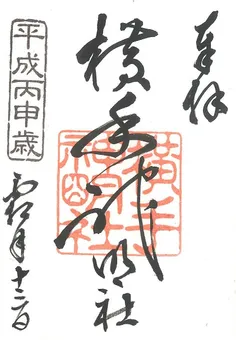 奉拝
横手神明社
平成丙申歳
十二日
横手神明社